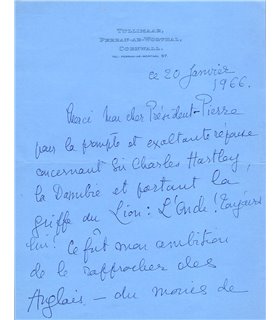 TULLIMAAR,
PERRAN-AR-WORTHAL,
CORNWALL.
TEL: PERRAN-AR-WORTHAL 57.
ce 20 Janvier
1966.
Merci Mon cher Président-Pierre
pour la prompte et exaltante réponse
concernant Sir Charles Hartley,
la Danube et portant la
griffe du Lion: L'Onde! Toujours
lui! Ce fut mon ambition
de le rapprocher des
Anglais – du moins de